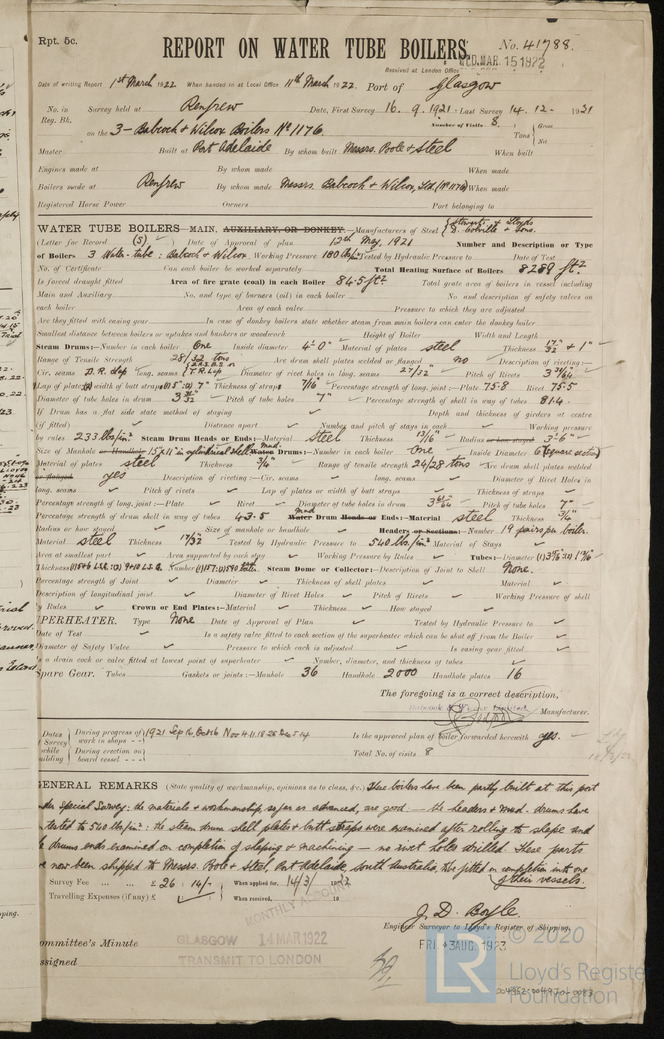 Rpt. 5c.
REPORT ON WATER TUBE BOILERS.
No. 41788.
Received at London Office WED. MAR. 15 1922
Date of writing Report 1st March 1922 When handed in at Local Office 11th March 1922 Port of Glasgow
No. in Reg. Bk. Survey held at Renfrew Date, First Survey 16. 9. 1921 Last Survey 14. 12. 1921
Number of Visits 8.
on the 3 - Babcock & Wilcox Boilers No 1176 Tons { Gross Net
Master Built at Port Adelaide By whom built Messrs. Poole & Steel When built
Engines made at By whom made When made
Boilers made at Renfrew By whom made Messrs. Babcock & Wilcox, Ltd. (No 1176) When made
Registered Horse Power Owners Port belonging to
WATER TUBE BOILERS—MAIN, AUXILIARY, OR DONKEY.—Manufacturers of Steel { Stewarts & Lloyds D. Colville & Sons.
(Letter for Record (S) ) Date of Approval of plan 12th May, 1921 Number and Description or Type
of Boilers 3 Water-tube : Babcock & Wilcox. Working Pressure 180 lbs/in² Tested by Hydraulic Pressure to Date of Test
No. of Certificate Can each boiler be worked separately Total Heating Surface of Boilers 8289 ft.²
Is forced draught fitted Area of fire grate (coal) in each Boiler 84.5 ft² Total grate area of boilers in vessel including
Main and Auxiliary No. and type of burners (oil) in each boiler No. and description of safety valves on
each boiler Area of each valve Pressure to which they are adjusted
Are they fitted with easing gear In case of donkey boilers state whether steam from main boilers can enter the donkey boiler
Smallest distance between boilers or uptakes and bunkers or woodwork Height of Boiler Width and Length
Steam Drums:—Number in each boiler One Inside diameter 4'-0" Material of plates steel Thickness 17/32" & 1"
Range of Tensile Strength 28/32 tons Are drum shell plates welded or flanged no Description of riveting:—
Cir. seams D.R. Lap long. seams Diameter of rivet holes in long. seams 27/32" Pitch of Rivets
Lap of plates or width of butt straps Thickness of straps 7/16" Percentage strength of long. joint:—Plate 75.8 Rivet 75.5
Diameter of tube holes in drum Pitch of tube holes 7" Percentage strength of shell in way of tubes 81.4
If Drum has a flat side state method of staying Depth and thickness of girders at centre
(if fitted) Distance apart Number and pitch of stays in each Working pressure
by rules 233 lbs/in² Steam Drum Heads or Ends:—Material steel Thickness Radius or how stayed 3'-6"
Size of Manhole or Handhole 15"x11" in cylindrical shell Mud Water Drums:—Number in each boiler One Inside Diameter 6" (square section)
Material of plates steel Thickness 3/4" Range of tensile strength 24/28 tons Are drum shell plates welded
or flanged yes Description of riveting:—Cir. seams long. seams Diameter of Rivet Holes in
long. seams Pitch of rivets Lap of plates or width of butt straps Thickness of straps
Percentage strength of long. joint:—Plate Rivet Diameter of tube holes in drum Pitch of tube holes 7"
Percentage strength of drum shell in way of tubes 43.5 Mud Water Drum Heads or Ends:—Material steel Thickness 3/4"
Radius or how stayed Size of manhole or handhole Headers or Sections:—Number 19 pairs per boiler.
Material steel Thickness 17/32 Tested by Hydraulic Pressure to 540 lbs./in² Material of Stays
Area at smallest part Area supported by each stay Working Pressure by Rules Tubes:—Diameter
Thickness Number Steam Dome or Collector:—Description of Joint to Shell None.
Percentage strength of Joint Diameter Thickness of shell plates Material
Description of longitudinal joint Diameter of Rivet Holes Pitch of Rivets Working Pressure of shell
by Rules Crown or End Plates:—Material Thickness How stayed
UPERHEATER. Type None Date of Approval of Plan Tested by Hydraulic Pressure to
Date of Test Is a safety valve fitted to each section of the superheater which can be shut off from the Boiler
Diameter of Safety Valve Pressure to which each is adjusted Is easing gear fitted
Is a drain cock or valve fitted at lowest point of superheater Number, diameter, and thickness of tubes
Spare Gear. Tubes Gaskets or joints:—Manhole 36 Handhole 2000 Handhole plates 16
The foregoing is a correct description,
Manufacturer.
Dates of Survey while building { During progress of work in shops - - } 1921 Sep 16 Oct 6 Nov 4. 11. 18. 28 Dec 5. 14 Is the approved plan of boiler forwarded herewith yes.
{ During erection on board vessel - - - } Total No. of visits 8
GENERAL REMARKS (State quality of workmanship, opinions as to class, &c.) These boilers have been partly built at this port
under Special Survey: the materials & workmanship, so far as advanced, are good — the headers & mud-drums have
tested to 540 lbs/in²: the steam drum shell plates & butt straps were examined after rolling to shape and
drums ends examined on completion of shaping & machining — no rivet holes drilled. These parts
now been shipped to Messrs. Poole & Steel, Port Adelaide, South Australia, to be fitted on completion into one
of their vessels.
Survey Fee ... ... £ 26 : 14/- When applied for, 14/3/1922
Travelling Expenses (if any) £ When received, 19
MONTHLY ACCOUNT
J. D. Boyle.
Engineer Surveyor to Lloyd's Register of Shipping.
ommittee's Minute
GLASGOW 14 MAR 1922
FRI. 3 AUG. 1923
ssigned
TRANSMIT TO LONDON
LR
© 2020
Lloyd's Register
Foundation